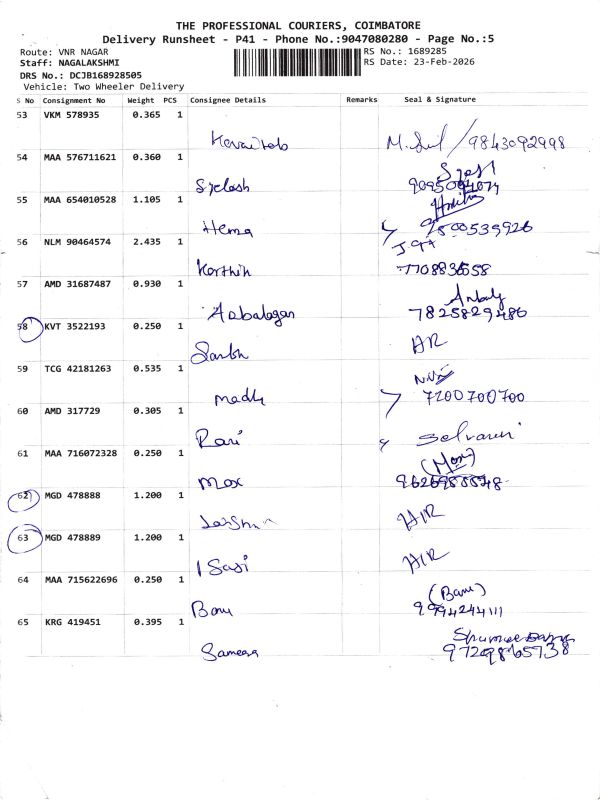 THE PROFESSIONAL COURIERS, COIMBATORE
Delivery Runsheet - P41 - Phone No.:9047080280 - Page No.:5
Route: VNR NAGAR
RS No.: 1689285
Staff: NAGALAKSHMI
RS Date: 23-Feb-2026
DRS No.: DCJB168928505
Vehicle: Two Wheeler Delivery
S No Consignment No Weight PCS Consignee Details Remarks Seal & Signature
53 VKM 578935 0.365 1
9843092998
54 MAA 576711621 0.360 1
55 MAA 654010528 1.105 1
Hema 9500539926
56 NLM 90464574 2.435 1
Karthik
57 AMD 31687487 0.930 1
7825829486
58 KVT 3522193 0.250 1
59 TCG 42181263 0.535 1
Madhu 7200700700
60 AMD 317729 0.305 1
Ravi
61 MAA 716072328 0.250 1
Max
62 MGD 478888 1.200 1
63 MGD 478889 1.200 1
64 MAA 715622696 0.250 1
(Banu)
Banu 9994244111
65 KRG 419451 0.395 1
Sameera